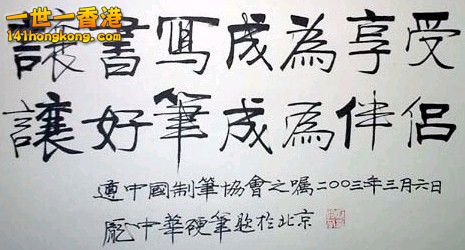 一世一香港
141hongkong.com
讓書寫成為享受
讓好筆成為伴侶
遵中國制筆協會之嘱二〇〇三年三月六日
龐中華硬筆題於北京